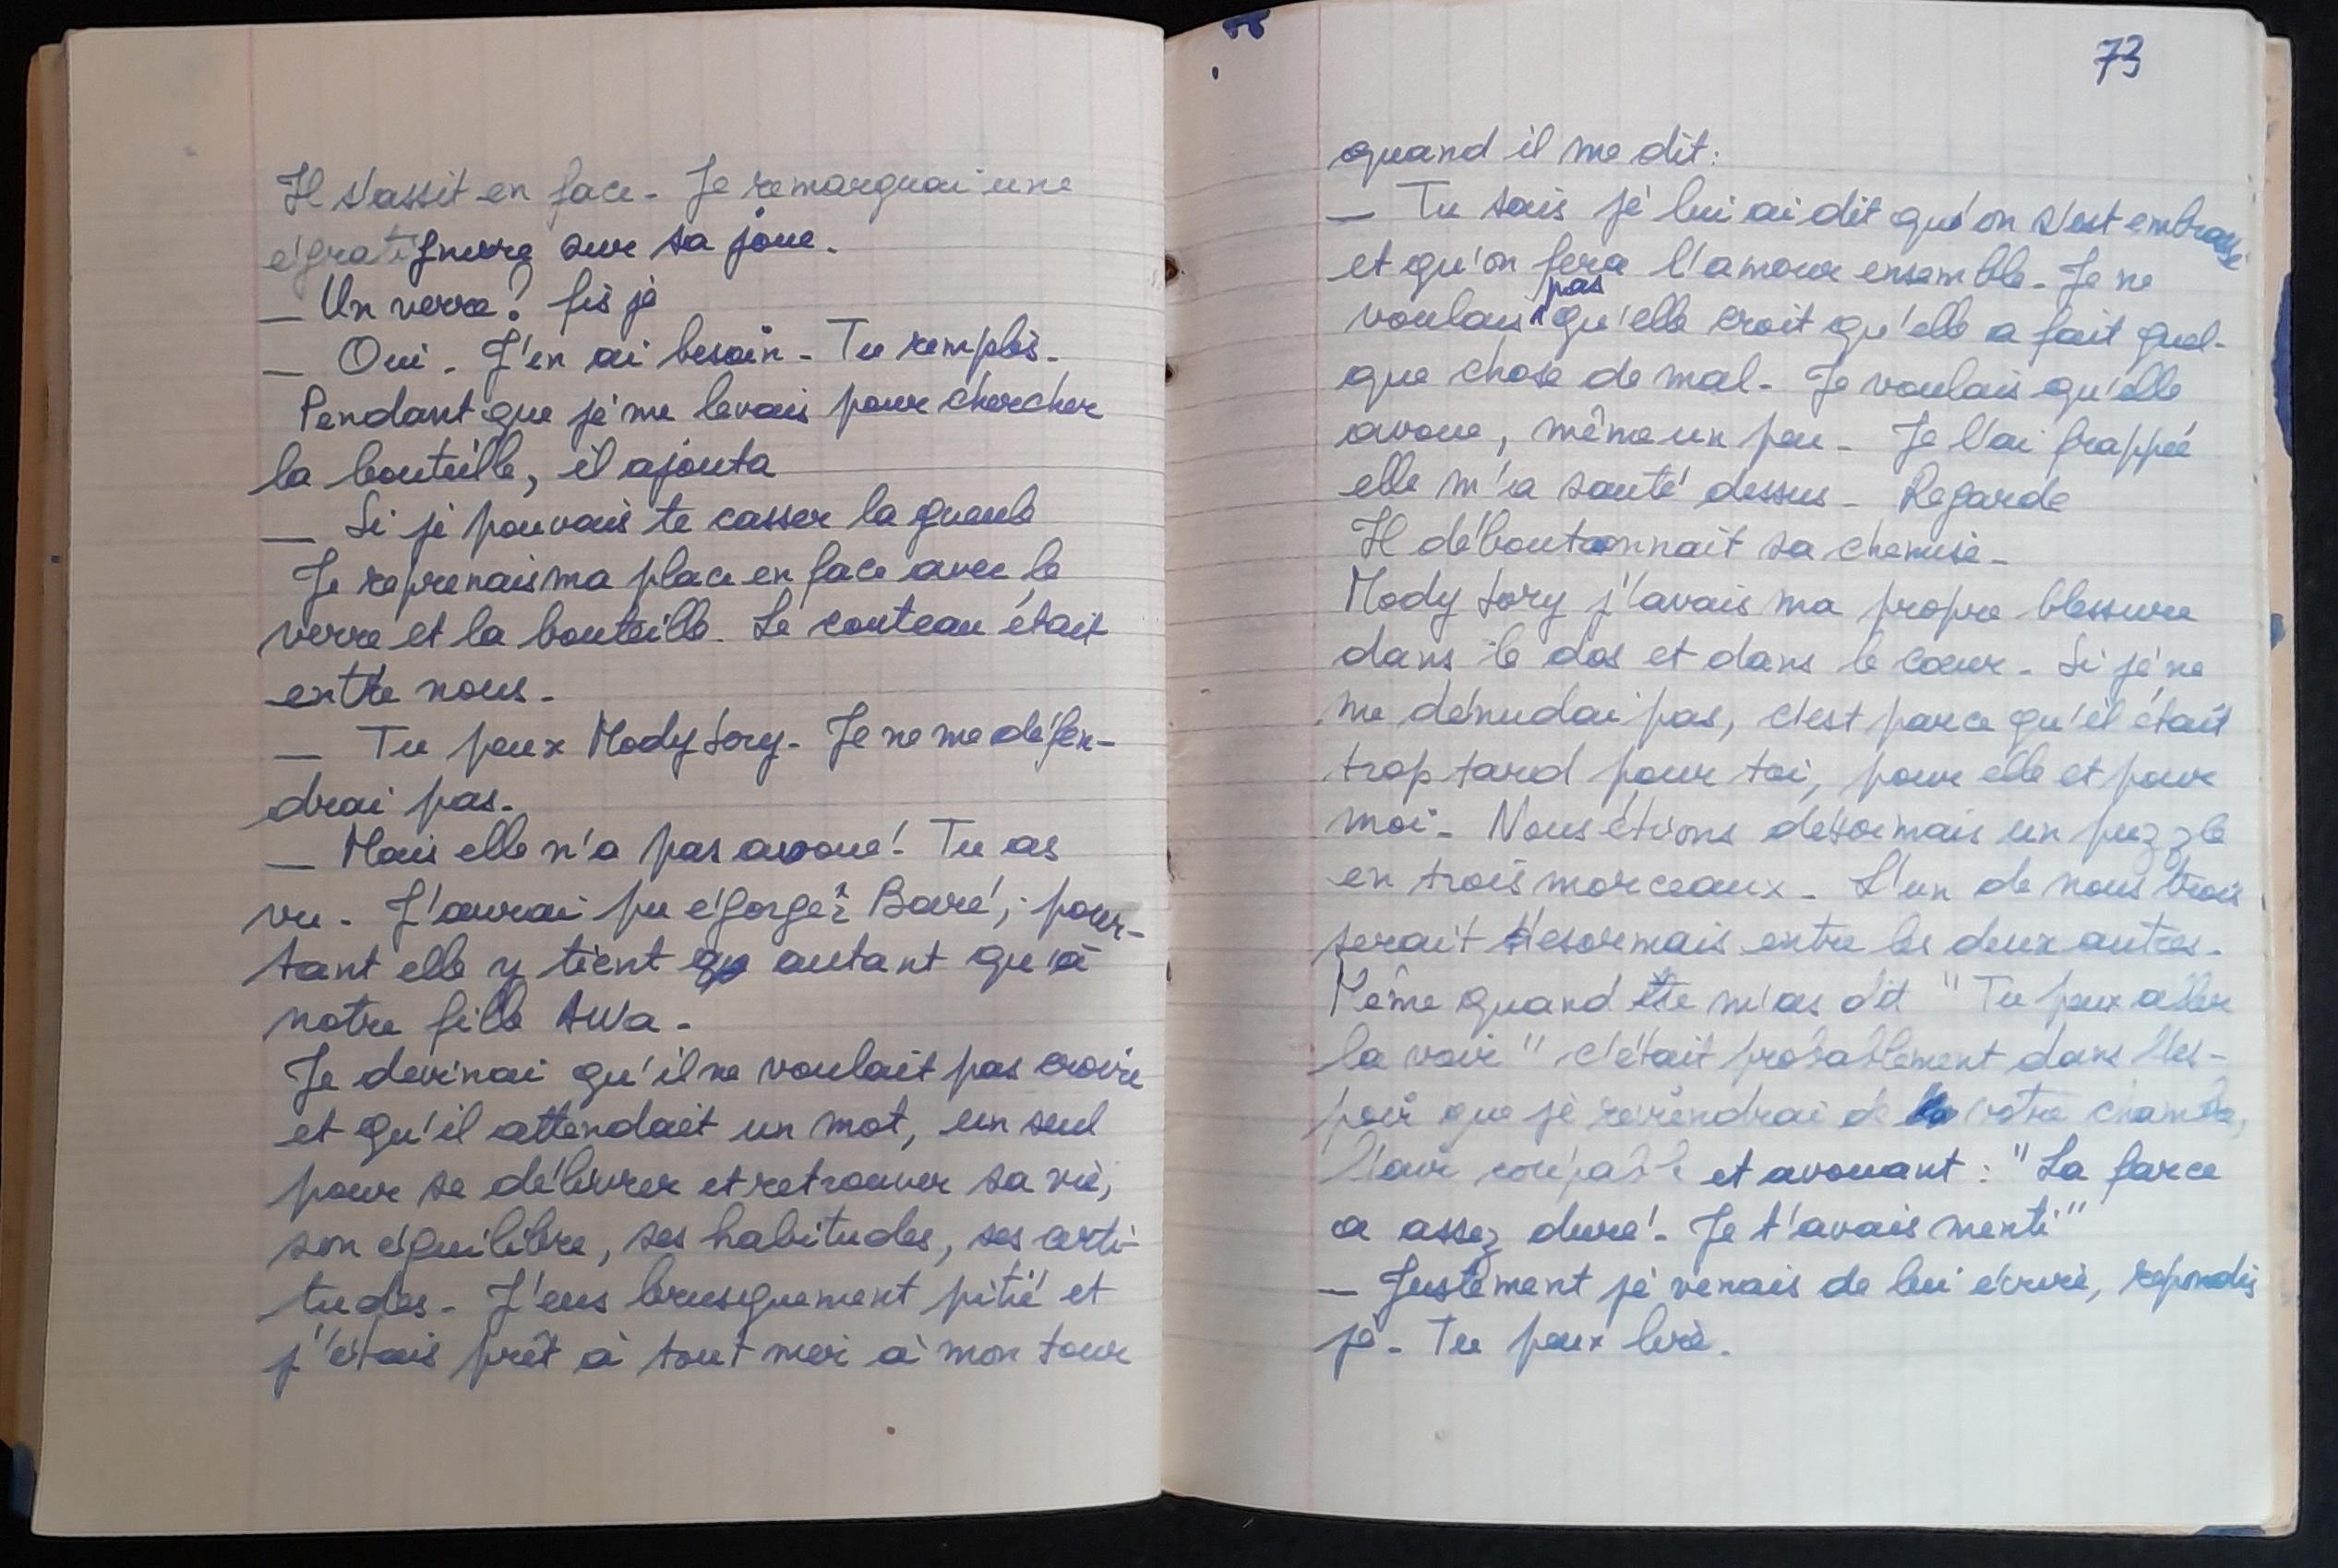 Il s'assit en face. Je remarquai une
égratignure sur sa joue.
— Un verre? fis je
— Oui. J'en ai besoin. Tu remplis.
Pendant que je me levais pour chercher
la bouteille, il ajouta
— Si je pouvais te casser la gueule
Je reprenais ma place en face avec le
verre et la bouteille. Le couteau était
entre nous.
— Tu peux Mody Sory. Je ne me défen-
drai pas.
— Mais elle n'a pas avoué! Tu as
vu. J'aurai pu égorger Baré, pour-
tant elle y tient autant qu'à
notre fille Awa.
Je devinai qu'il ne voulait pas croire
et qu'il attendait un mot, un seul
pour se délivrer et retrouver sa vie,
son équilibre, ses habitudes, ses certi-
tudes. J'eus brusquement pitié et
j'étais prêt à tout moi à mon tour
73
quand il me dit:
— Tu sais je lui ai dit qu'on s'est embrassé
et qu'on fera l'amour ensemble. Je ne
voulais pas qu'elle croit qu'elle a fait quel-
que chose de mal. Je voulais qu'elle
avoue, même un peu. Je l'ai frappée
elle m'a sauté dessus. Regarde
Il déboutonnait sa chemise.
Mody Sory j'avais ma propre blessure
dans le dos et dans le coeur. Si je ne
me dénudai pas, c'est parce qu'il était
trop tard pour toi, pour elle et pour
moi. Nous étions désormais un puzzle
en trois morceaux. L'un de nous trois
serait désormais entre les deux autres.
Même quand tu m'as dit "Tu peux aller
la voir" c'était probablement dans l'es-
poir que je reviendrai de votre chambre,
l'air coupable et avouant: "La farce
a assez duré! Je t'avais menti"
— Justement je venais de lui écrire, repondis
je. Tu peux lire.